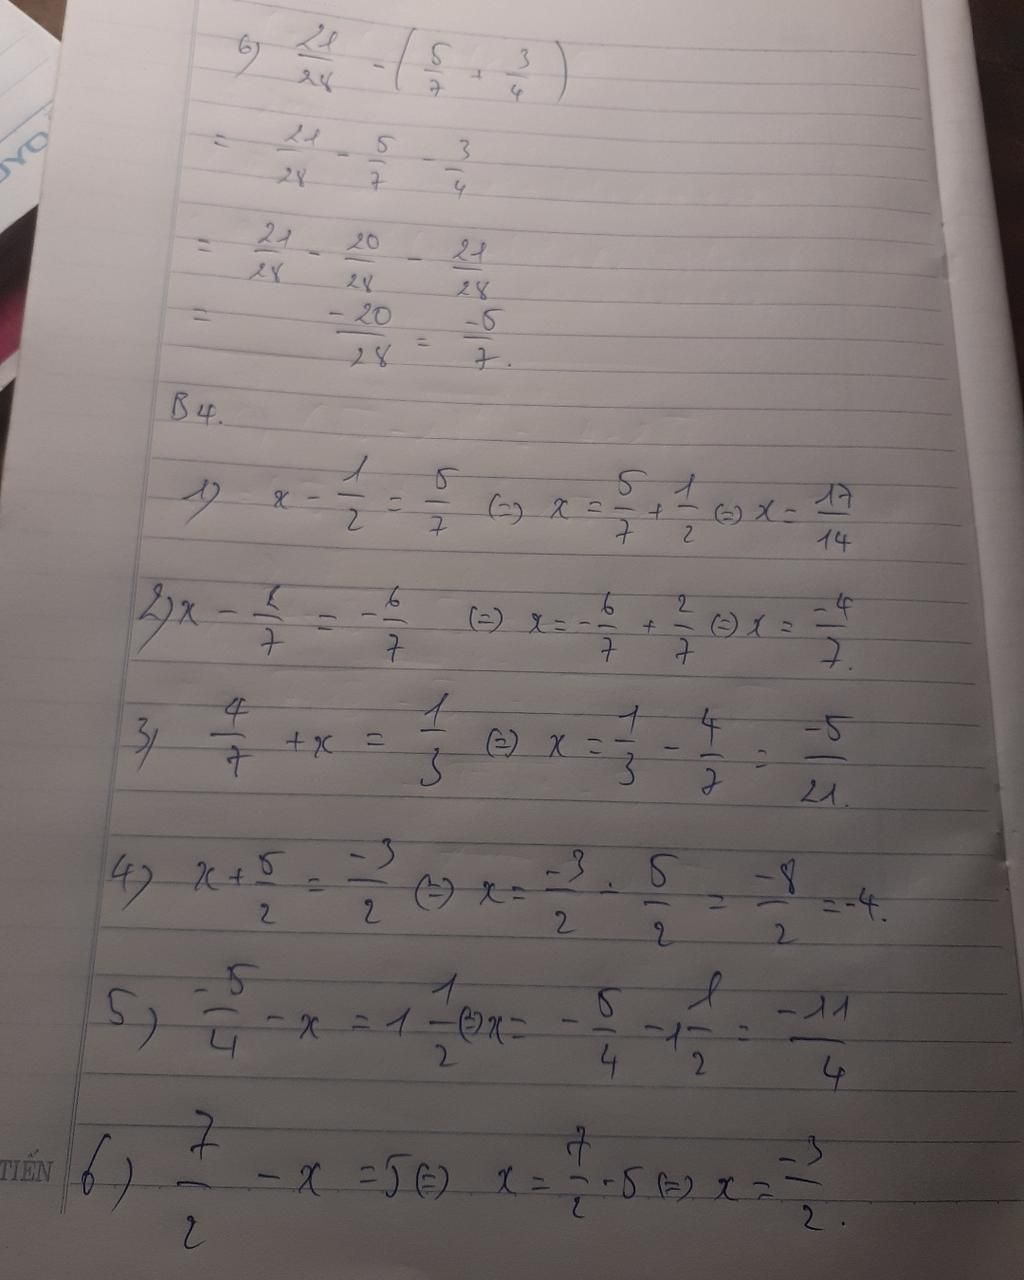 6) 21/28 - (5/7 + 3/4)
= 21/28 - 5/7 - 3/4
= 21/28 - 20/28 - 21/28
= -20/28 = -5/7.
B4.
1) x - 1/2 = 5/7 (=) x = 5/7 + 1/2 (=) x = 17/14
2) x - 2/7 = -6/7 (=) x = -6/7 + 2/7 (=) x = -4/7.
3) 4/7 + x = 1/3 (=) x = 1/3 - 4/7 = -5/21.
4) x + 5/2 = -3/2 (=) x = -3/2 - 5/2 = -8/2 = -4.
5) -5/4 - x = 1 1/2 (=) x = -5/4 - 1 1/2 = -11/4
TIẾN
6) 7/2 - x = 5 (=) x = 7/2 - 5 (=) x = -3/2.